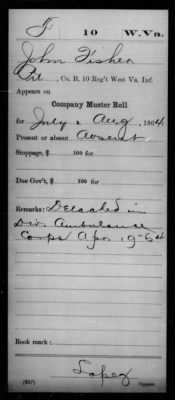 F 10 W.Va.
John Fisher
Pvt., Co. B, 10 Reg't West Va. Inf.
Appears on
Company Muster Roll
for July & Aug, 1864.
Present or absent Absent
Stoppage, $ 100 for
Due Gov't, $ 100 for
Remarks: Detached in
Div. Ambulance
Corps Apr. 19" 64
Book mark:
(857)
Copyist.